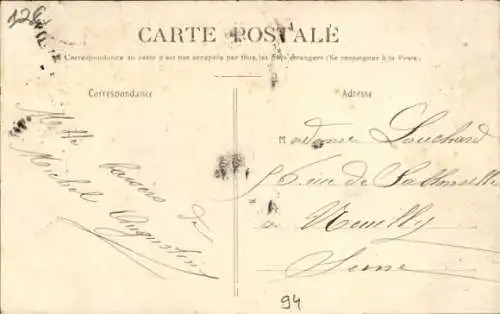 126
CARTE POSTALE
La Correspondance au recto n'est pas acceptée par tous les pays étrangers (Se renseigner à la Poste)
Correspondance
Adresse
Melle
Michel
baisers de
Augustine
Madame Louchard
56 rue de Sablonville
a Neuilly
Seine
94